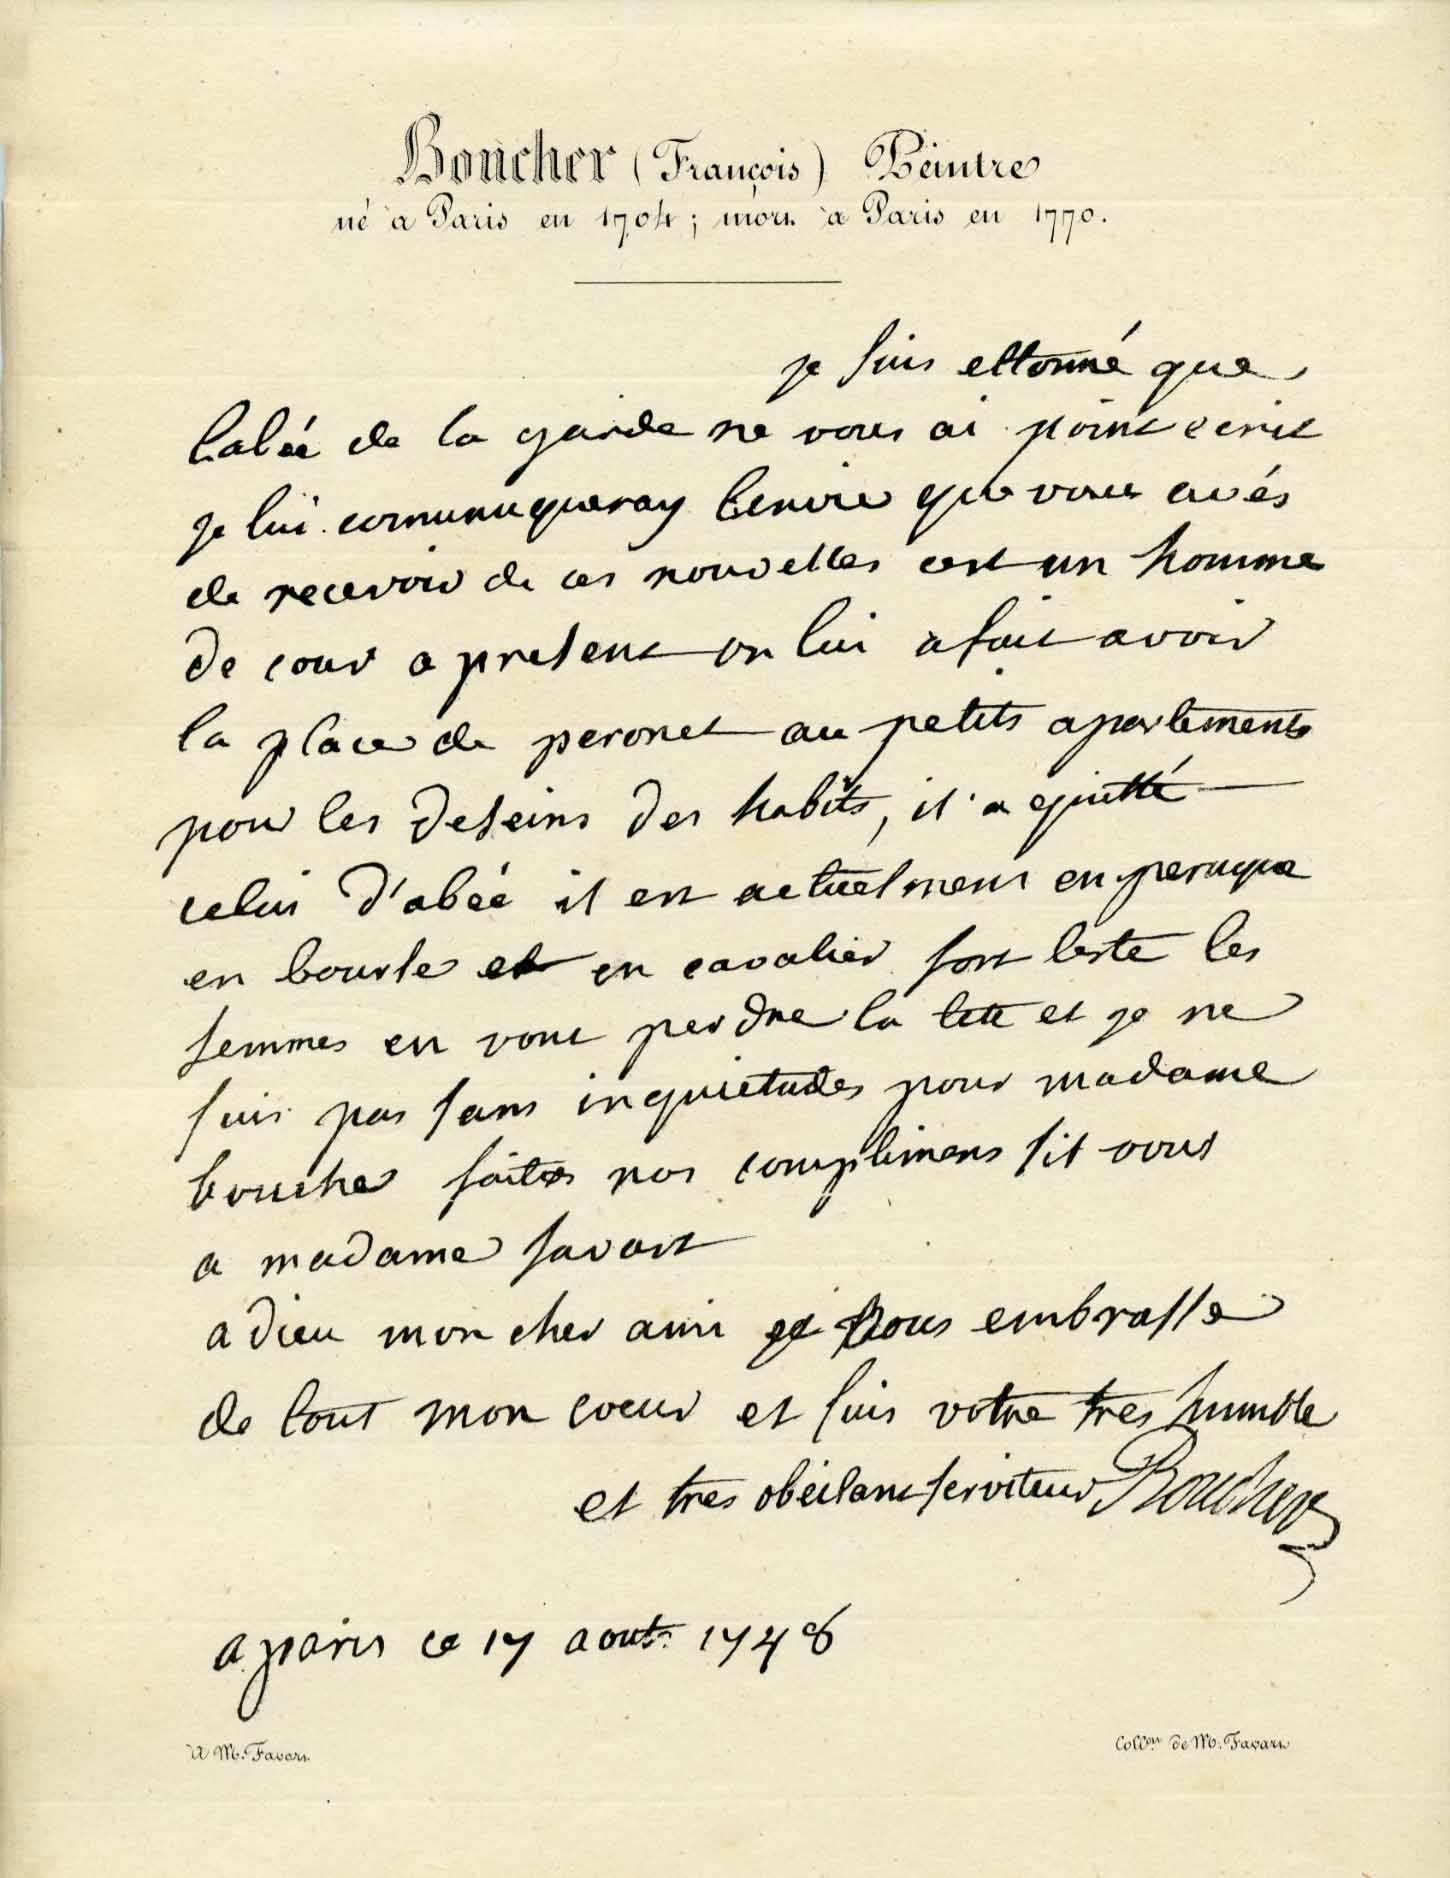 Boucher (François) Peintre
né à Paris en 1704; mort à Paris en 1770.
je suis ettonné que
l'abéé de la garde ne vous ai point ecrit
je lui comuniqueray l'envie que vous avés
de recevoir de ces nouvelles cest un homme
de cour a present on lui a fait avoir
la place de peronet au petits apartements
pour les deseins des habits, il a quitté
celui d'abéé il est actuelment en peruque
en bourse et en cavalier fort leste les
femmes en vont perdre la tete et je ne
suis pas sans inquietudes pour madame
boucher faites nos complimens sil vous
a madame favart
adieu mon cher ami je vous embrasse
de tout mon coeur et suis votre tres humble
et tres obeisant serviteur Boucher
a paris ce 17 aout 1748
A M. Favart
Collon de M. Favart